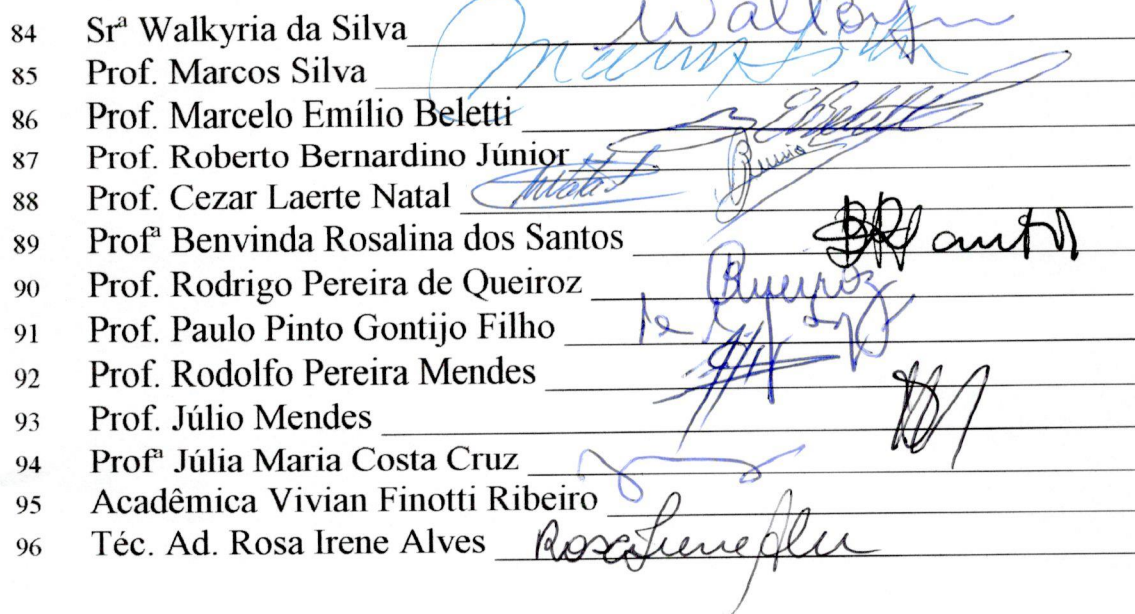 84 Srª Walkyria da Silva
85 Prof. Marcos Silva
86 Prof. Marcelo Emílio Beletti EBeletti
87 Prof. Roberto Bernardino Júnior Junior
88 Prof. Cezar Laerte Natal
89 Profª Benvinda Rosalina dos Santos
90 Prof. Rodrigo Pereira de Queiroz Queiroz
91 Prof. Paulo Pinto Gontijo Filho
92 Prof. Rodolfo Pereira Mendes
93 Prof. Júlio Mendes
94 Profª Júlia Maria Costa Cruz
95 Acadêmica Vivian Finotti Ribeiro
96 Téc. Ad. Rosa Irene Alves Rosa Irene Alves